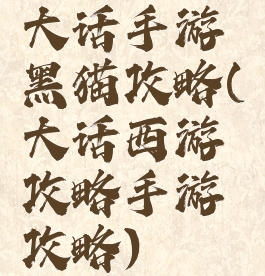 大话手游
黑猫攻略(
大话西游
攻略手游
攻略)